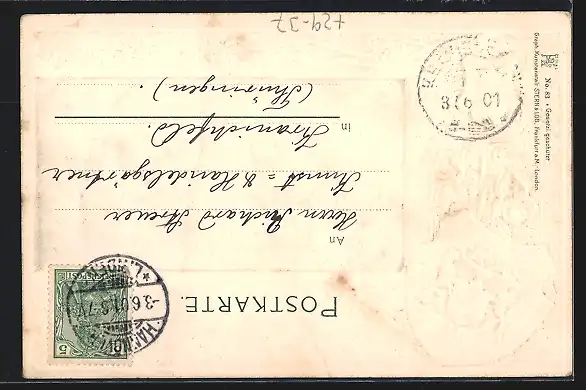 POSTKARTE.
An
Herrn Richard
Kunst= & Handelsgärtner
in Kranichfeld.
(Thüringen)
HANNOVER
* LINDEN *
-3.6.01. 6-7
5
3/6 01
No. 83 • Gesetzl. geschützt
Graph. Kunstanstalt STERN & LÖB, Frankfurt a.M. - London.
+29-37